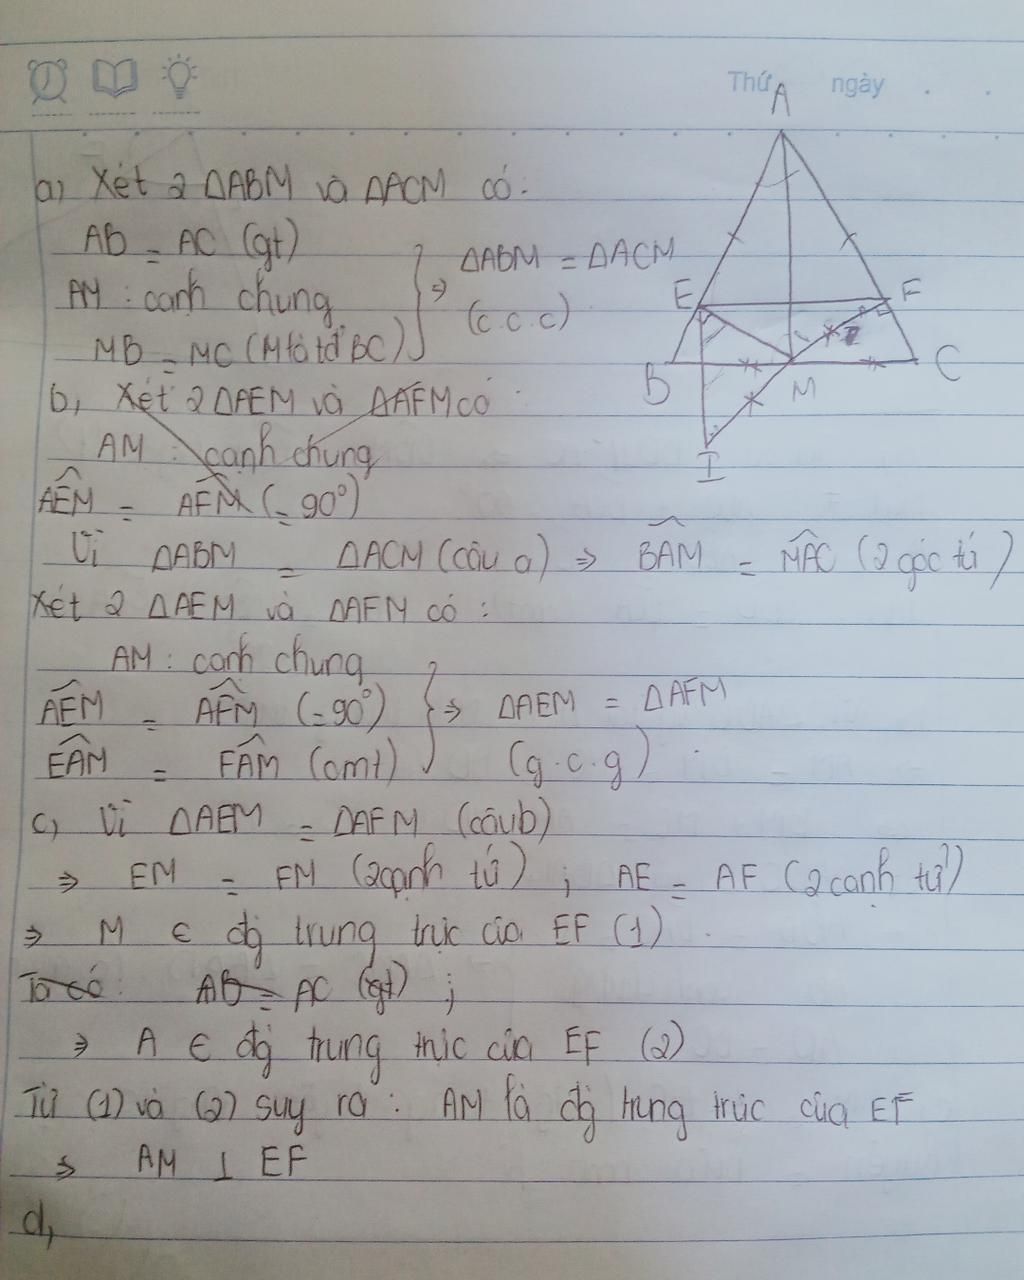 Thứ ngày
A
a, Xét 2 ΔABM và ΔACM có:
AB = AC (gt)
AM : cạnh chung
MB = MC (M là tđ BC)
⇒ ΔABM = ΔACM
(c.c.c)
E F
B M C
I
b, Xét 2 ΔAEM và ΔAFM có
AM : cạnh chung
AÊM = AF̂M (= 90°)
Vì ΔABM = ΔACM (câu a) ⇒ BÂM = MÂC (2 góc tứ)
Xét 2 ΔAEM và ΔAFM có :
AM : cạnh chung
AÊM = AF̂M (= 90°)
EÂM = FÂM (cmt)
⇒ ΔAEM = ΔAFM
(g.c.g)
c, Vì ΔAEM = ΔAFM (câu b)
⇒ EM = FM (2 cạnh tứ) ; AE = AF (2 cạnh tứ)
⇒ M ∈ đg trung trực của EF (1)
Ta có: AB = AC (gt) ;
⇒ A ∈ đg trung trực của EF (2)
Từ (1) và (2) suy ra : AM là đg trung trực của EF
⇒ AM ⊥ EF
d,